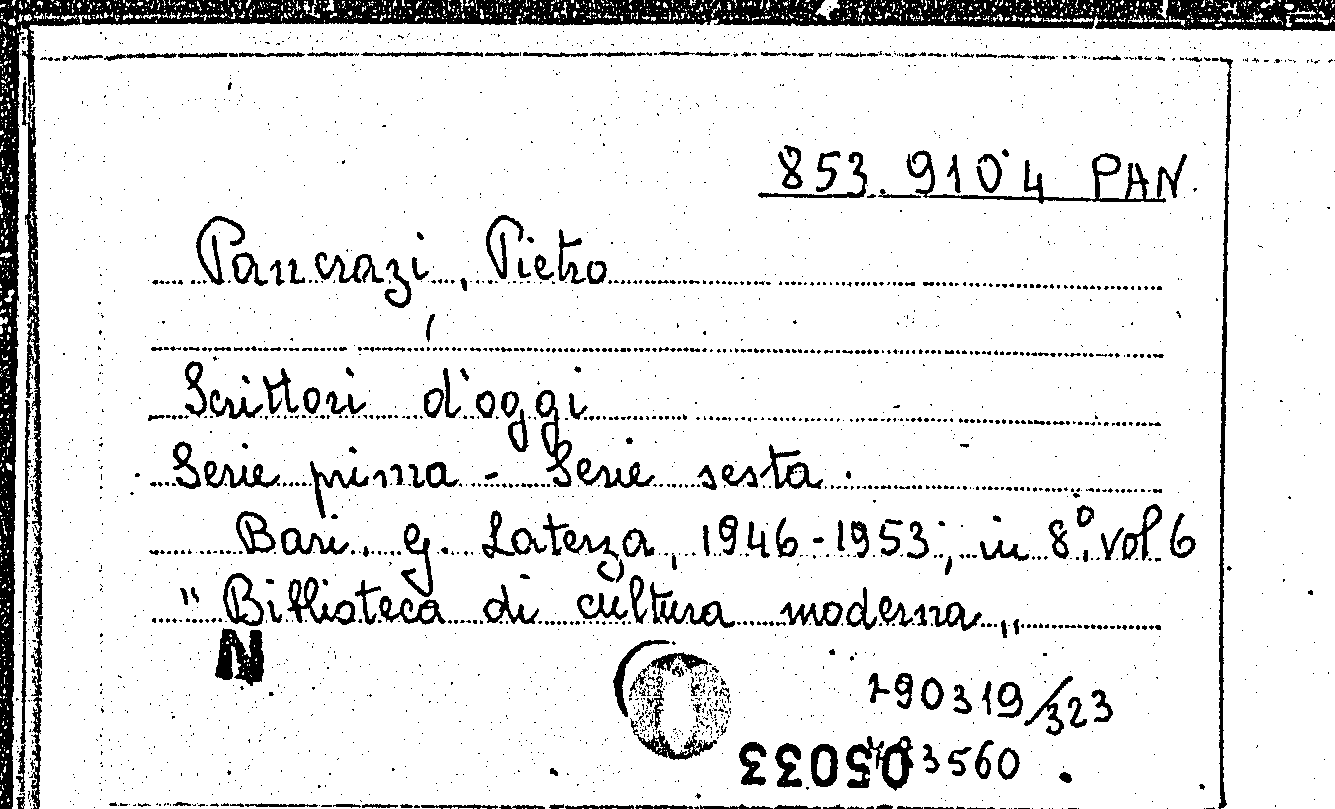 853.9104 PAN.
Pancrazi, Pietro
Scrittori d'oggi
Serie prima - Serie sesta.
Bari. G. Laterza, 1946-1953; in 8°. vol 6
"Biblioteca di cultura moderna"
N
190319/323
3560